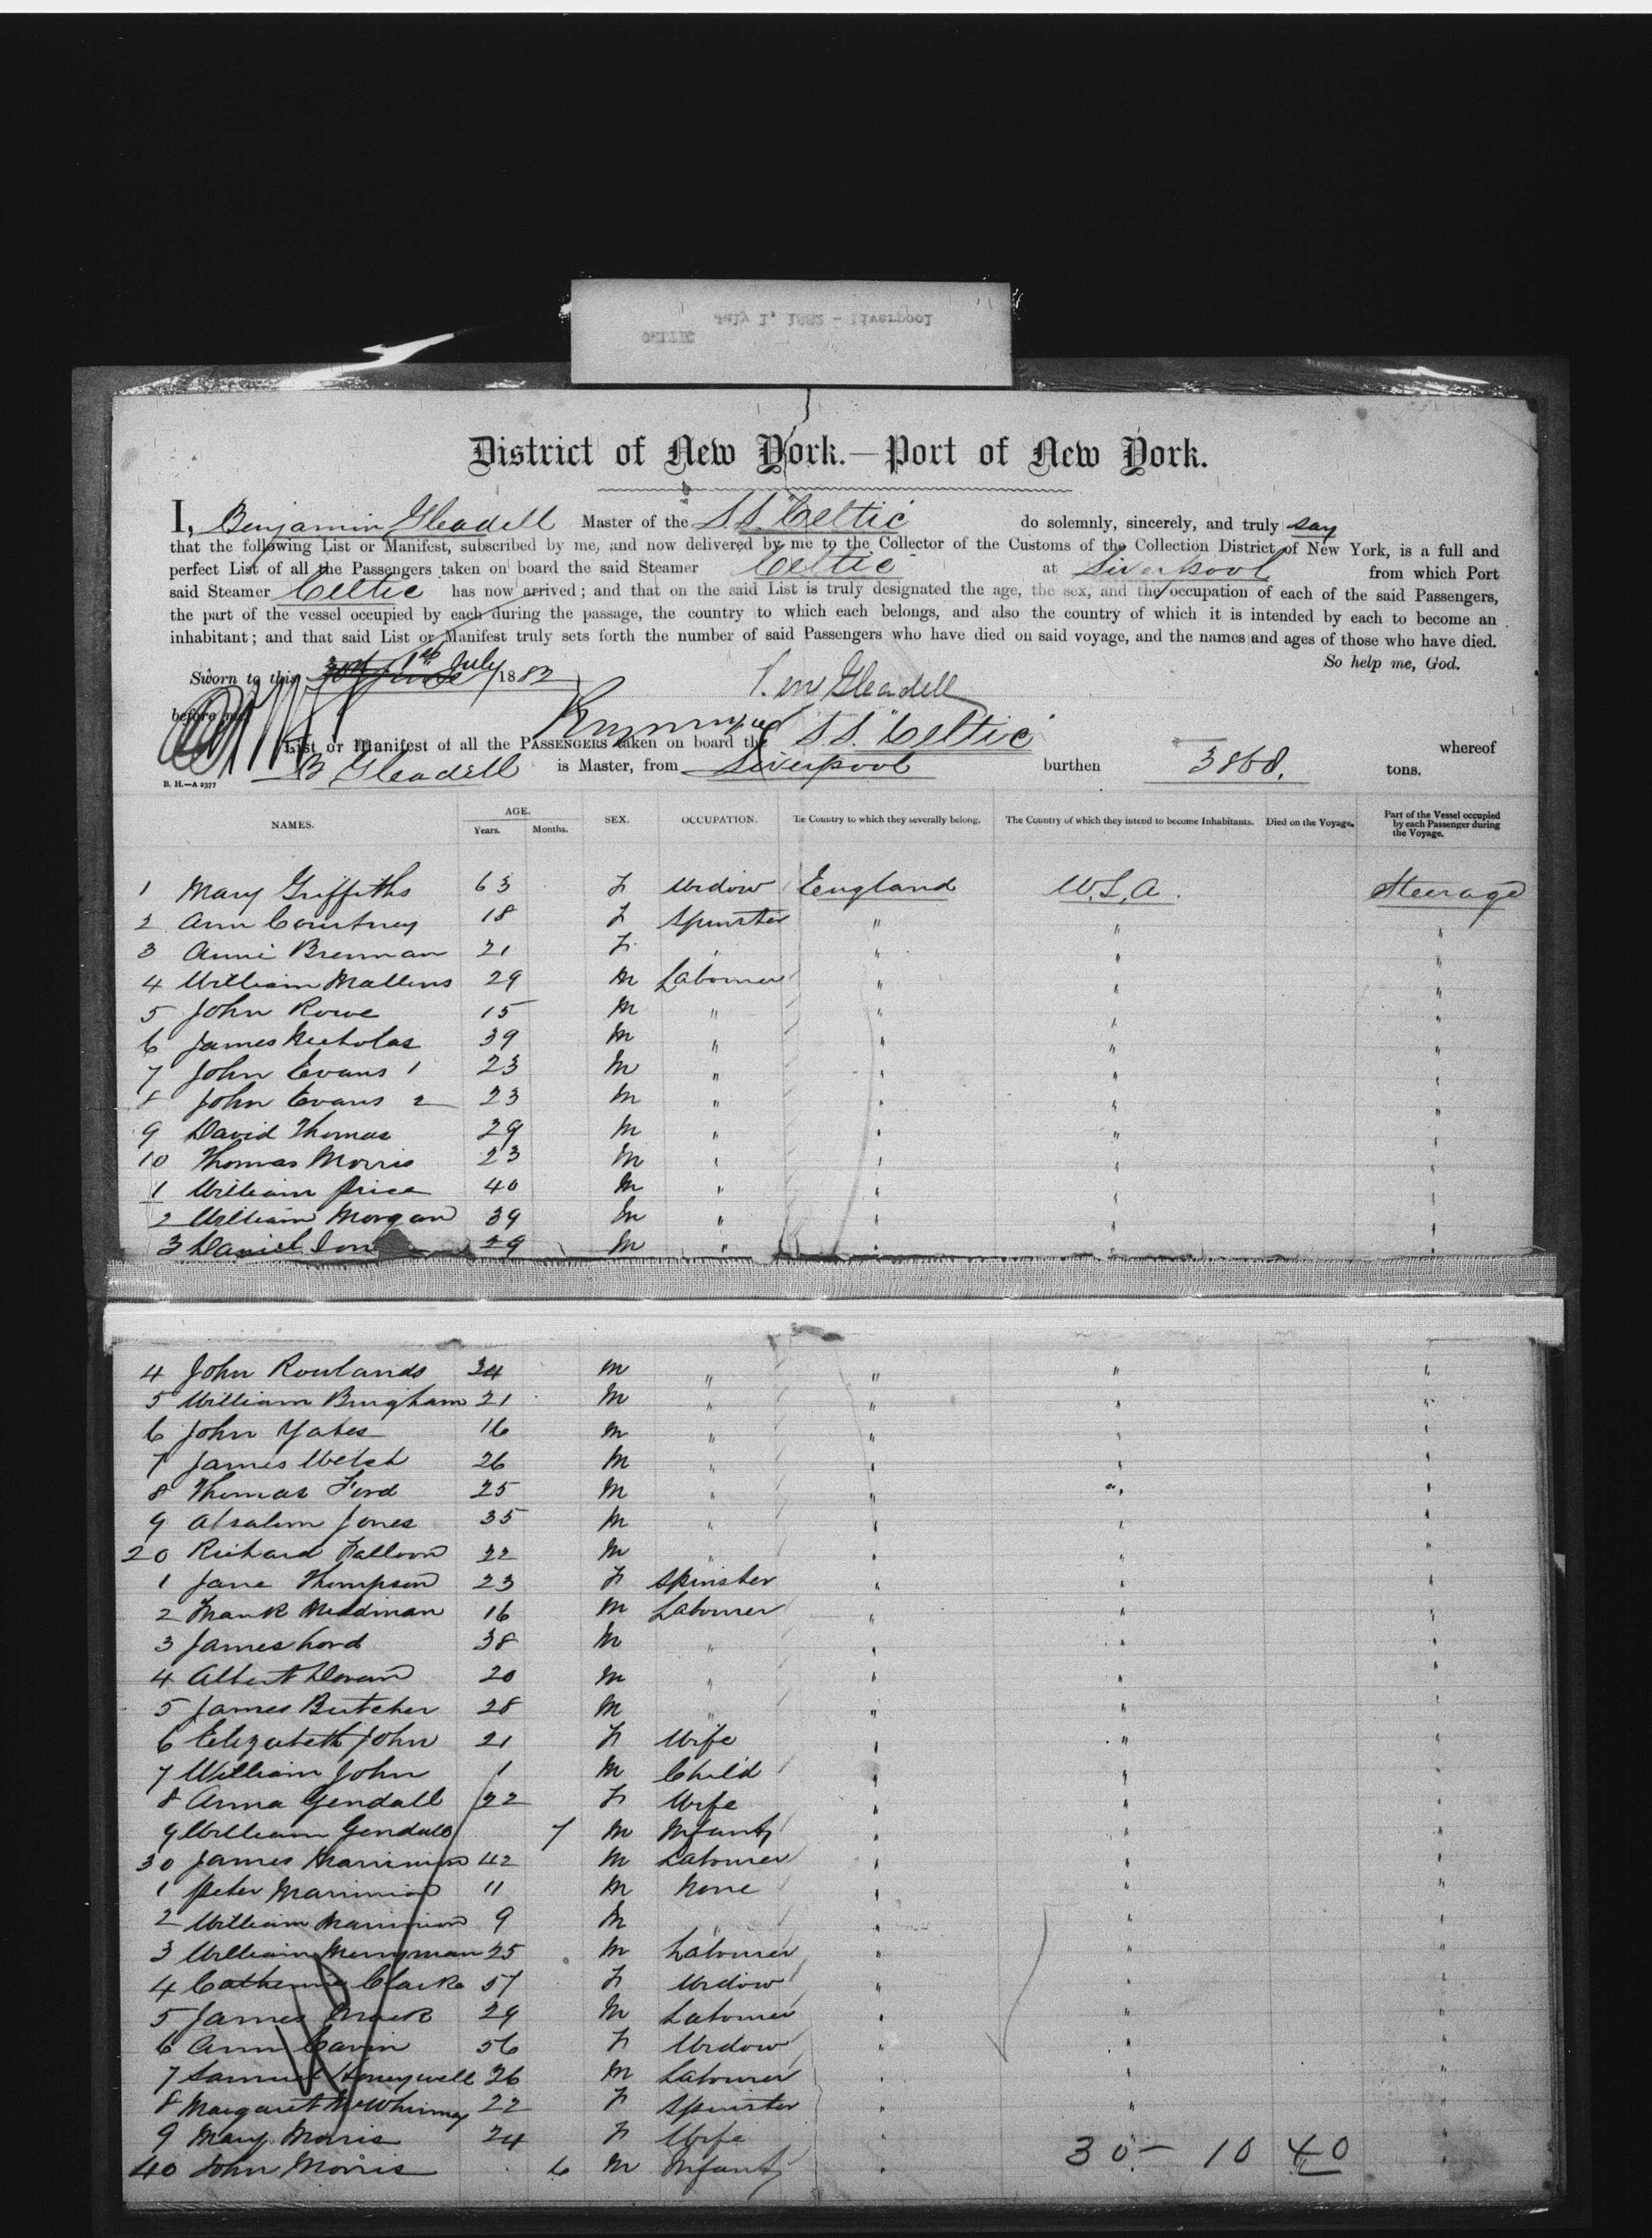 July 1, 1882 - Liverpool
CELTIC
District of New York.—Port of New York.
I, Benjamin Gleadell Master of the S.S. Celtic do solemnly, sincerely, and truly say
that the following List or Manifest, subscribed by me, and now delivered by me to the Collector of the Customs of the Collection District of New York, is a full and
perfect List of all the Passengers taken on board the said Steamer Celtic at Liverpool from which Port
said Steamer Celtic has now arrived; and that on the said List is truly designated the age, the sex, and the occupation of each of the said Passengers,
the part of the vessel occupied by each during the passage, the country to which each belongs, and also the country of which it is intended by each to become an
inhabitant; and that said List or Manifest truly sets forth the number of said Passengers who have died on said voyage, and the names and ages of those who have died.
So help me, God.
Sworn to this 1st July 1882
Gleadell
before me
List or Manifest of all the PASSENGERS taken on board the S.S. Celtic whereof
B Gleadell is Master, from Liverpool burthen 3868. tons.
B. H.—A 2377
NAMES. AGE. Years. Months. SEX. OCCUPATION. The Country to which they severally belong. The Country of which they intend to become Inhabitants. Died on the Voyage. Part of the Vessel occupied by each Passenger during the Voyage.
1 Mary Griffiths 63 F Widow England U.S.A. Steerage
2 Ann Courtney 18 F Spinster " " "
3 Annie Brennan 21 F " " " "
4 William Mallins 29 M Labourer " " "
5 John Rowe 15 M " " " "
6 James Nicholas 39 M " " " "
7 John Evans 1 23 M " " " "
8 John Evans 2 23 M " " " "
9 David Thomas 29 M " " " "
10 Thomas Morris 23 M " " " "
1 William Price 40 M " " " "
2 William Morgan 39 M " " " "
3 Daniel 29 M " " " "
4 John Rowlands 34 M " " " "
5 William Bingham 21 M " " " "
6 John Yates 16 M " " " "
7 James Welsh 26 M " " " "
8 Thomas Ford 25 M " " " "
9 Absalom Jones 35 M " " " "
20 Richard Falloon 22 M " " " "
1 Jane Thompson 23 F Spinster " " "
2 Frank 16 M Labourer " " "
3 James Lord 38 M " " " "
4 Albert Doran 20 M " " " "
5 James Butcher 28 M " " " "
6 Elizabeth John 21 F Wife " " "
7 William John 1 M Child " " "
8 Anna Gendall 22 F Wife " " "
9 William Gendall 7 M Infant " " "
30 James 42 M Labourer " " "
1 Peter 11 M None " " "
2 William 9 M " " " "
3 William Merryman 25 M Labourer " " "
4 Catherine Clarke 57 F Widow " " "
5 James 29 M Labourer " " "
6 Ann Cavin 56 F Widow " " "
7 Samuel Honeywell 26 M Labourer " " "
8 Margaret 22 F Spinster " " "
9 Mary Morris 24 F Wife " "
40 John Morris 6 M Infant " "
30 - 10 40